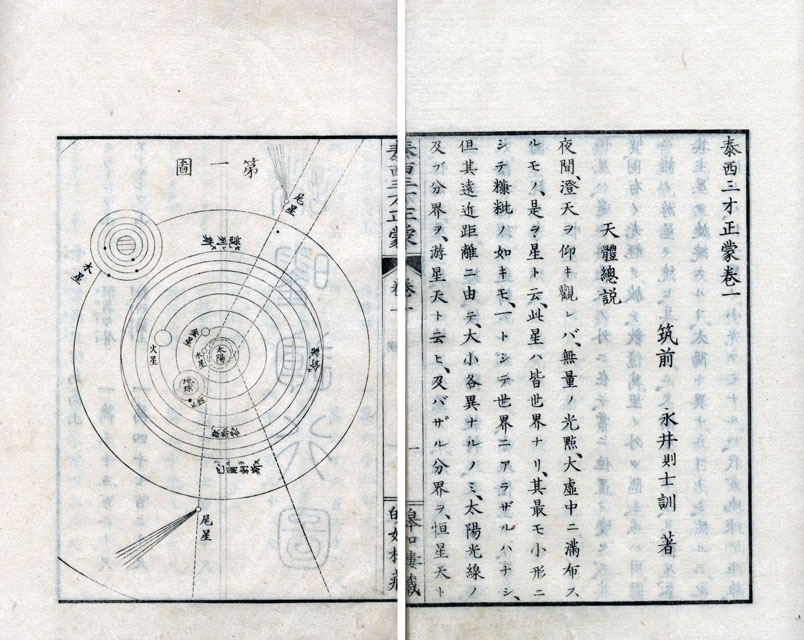 泰西三才正蒙卷一
筑前 永井則士訓 著
天體總説
夜間、澄天ヲ仰キ觀レバ、無量ノ光點、大虚中ニ滿布ス
ルモノ、是ヲ星ト云、此星ハ皆世界ナリ、其最モ小形ニ
シテ糠粃ノ如キモ、一トシテ世界ニアラザルハナシ、
但其遠近距離ニ由テ、大小各異ナルノミ、太陽光線ノ
及ブ分界ヲ、游星天ト云ヒ、及バザル分界ヲ、恒星天ト
泰西三才正蒙
卷一
一
第一圖
尾星
木星
火星
金星
水星
太陽
地球
尾星